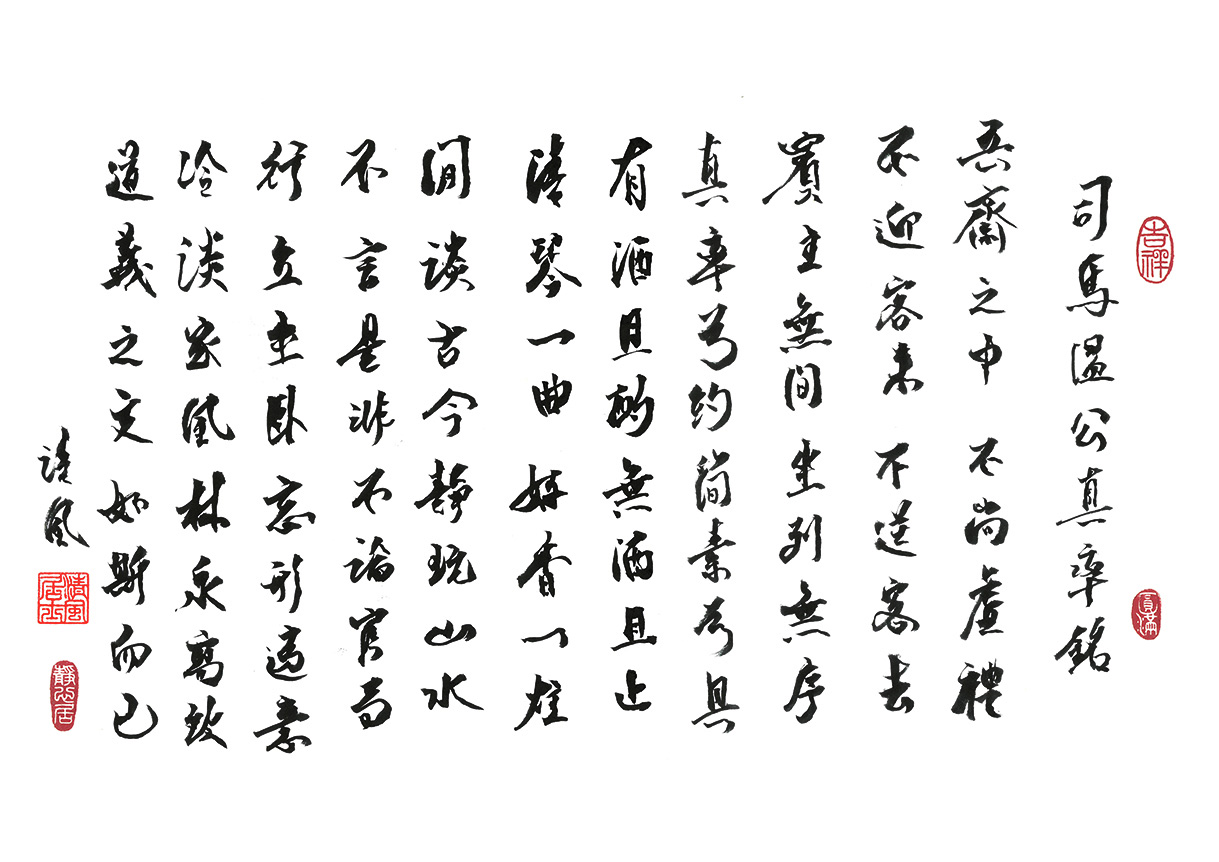 吉祥
司馬溫公真率銘
圓滿
吾齋之中 不尚虛禮
不迎客來 不送客去
賓主無間 坐列無序
真率為約 簡素為具
有酒且酌 無酒且止
清琴一曲 好香一炷
閒談古今 靜玩山水
不言是非 不論官局
行立坐臥 忘形適意
冷淡家風 林泉高致
道義之交 如斯而已
清風
清風居士
靜心居